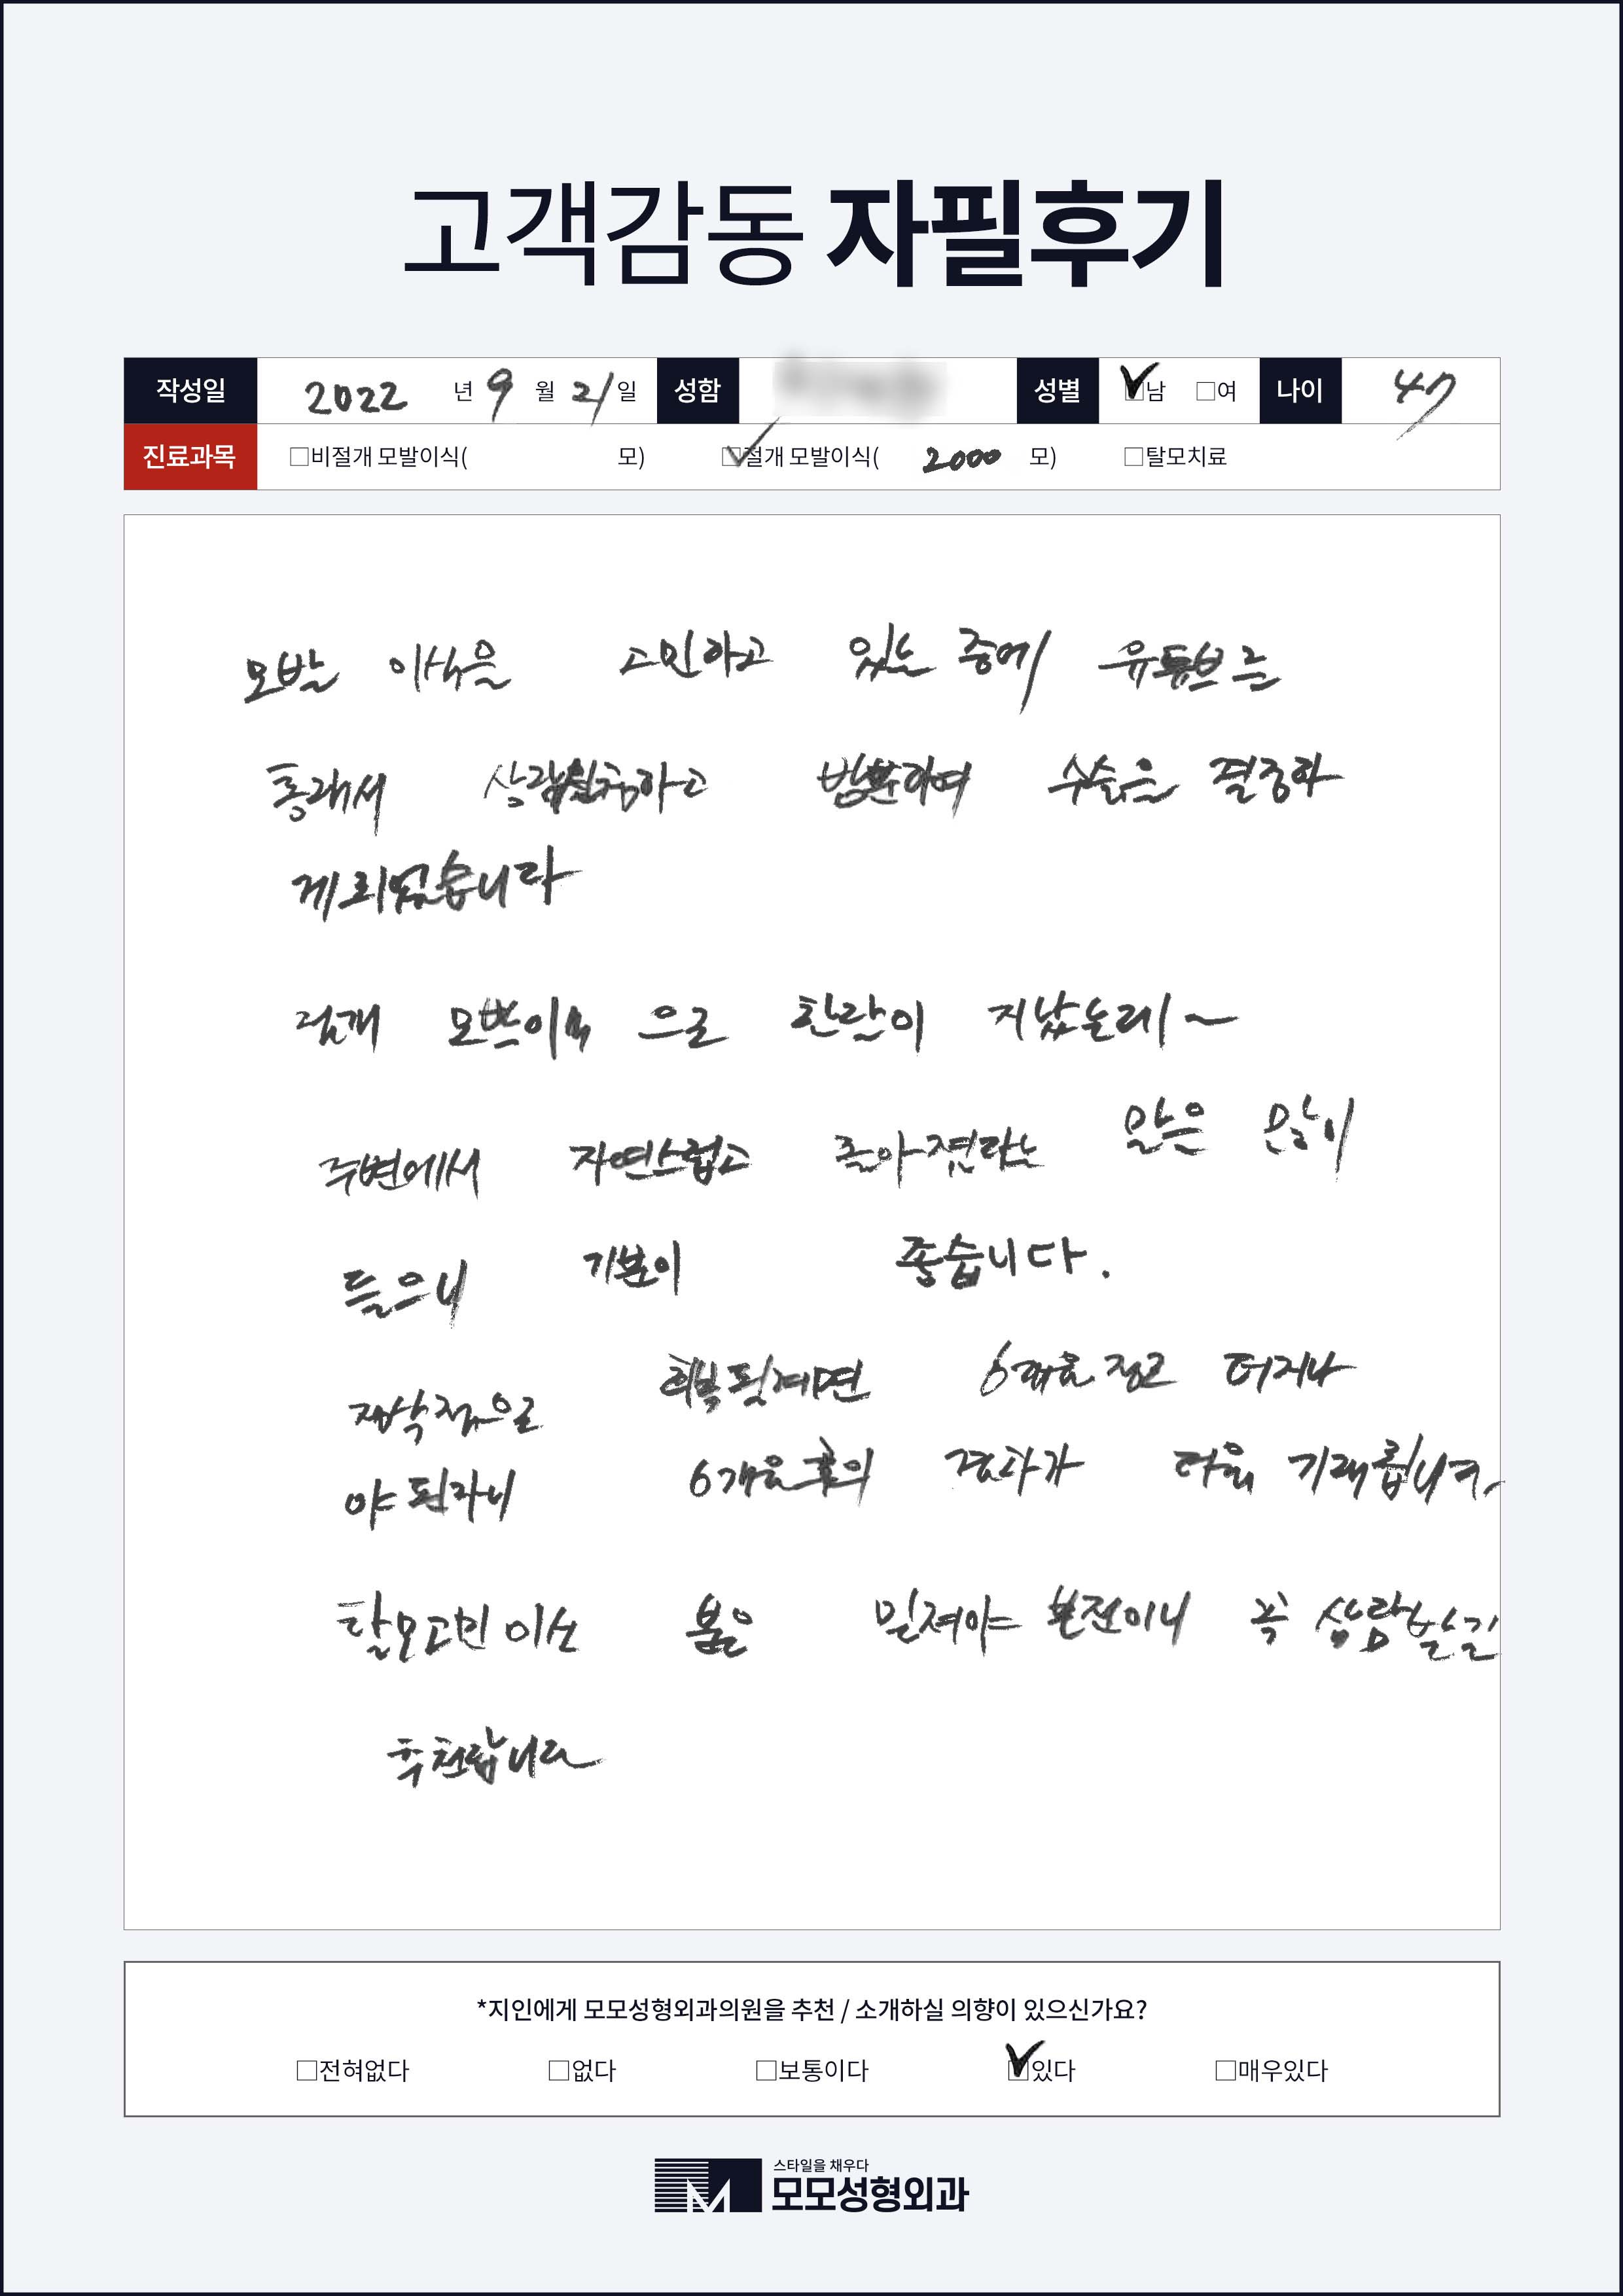 고객감동 자필후기
작성일 2022 년 9 월 21 일 성함 성별 ☑남 □여 나이 47
진료과목 □비절개 모발이식( 모) ☑절개 모발이식( 2000 모) □탈모치료
모발 이식을 고민하고 있는 중에 유튜브를
통해서 하고 방문하여 수술을 결정하
게 되었습니다
절개 모발이식 으로 한달이 지났는데~
주변에서 자연스럽고 좋아졌다는 말은 많이
들으니 기분이 좋습니다.
6개월 정도 더지나
야 된다니 6개월후의 결과가 더욱 기대됩니다
탈모고민 이신 분은 밑져야 본전이니 꼭 상담받길
추천합니다
*지인에게 모모성형외과의원을 추천 / 소개하실 의향이 있으신가요?
□전혀없다 □없다 □보통이다 ☑있다 □매우있다
스타일을 채우다
모모성형외과